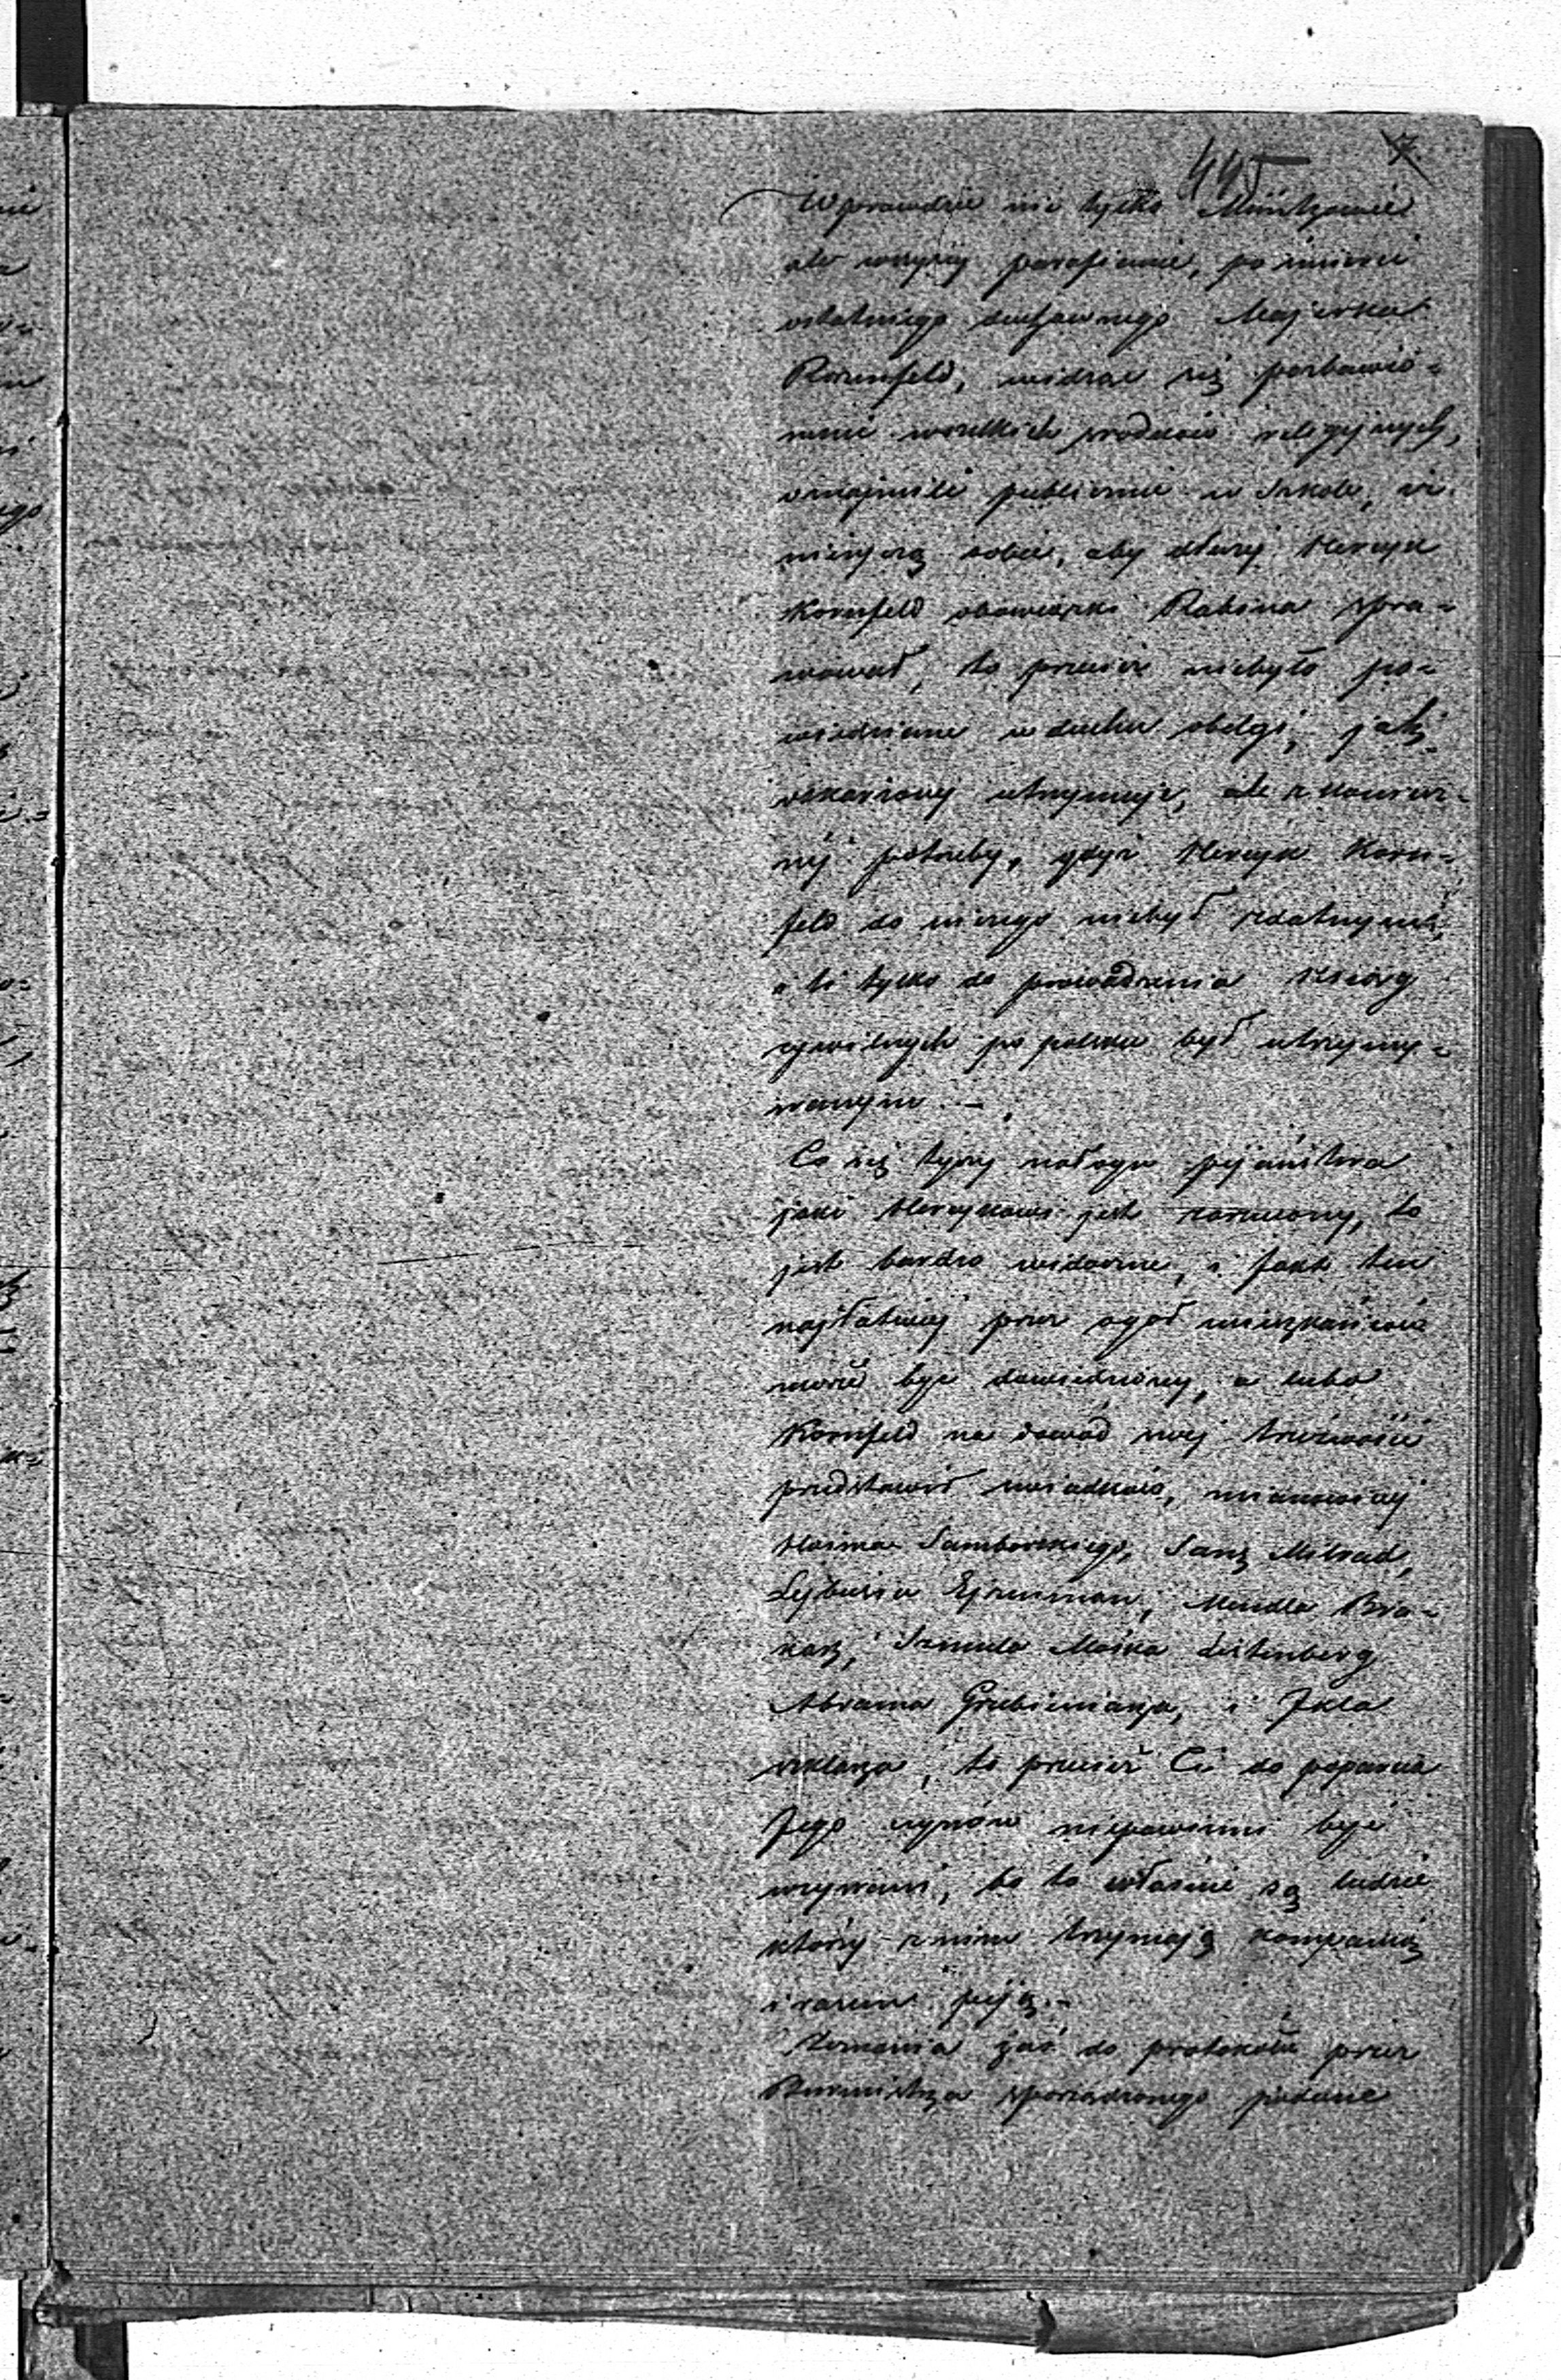 445 7
Wprawdzie nie tylko Müntzowie
ale wszyscy parafianie, po śmierci
ostatniego duchownego Majerka
Rozenfeld, widząc się pozbawio=
nemi wszelkich srodków religijnych,
oznajmili publicznie w Szkole, iż
nieżyczą sobie, aby dłużej Herszyk
Kornfeld obowiązki Rabina spra=
wował, to przecież niebyło po=
wiedziane w duchu obelgi, jak
oskarżony utrzymuje, ale z koniecz=
néj potrzeby, gdyż Herszyk Korn=
feld do niczego niebył zdatnym,
a li tylko do prowadzenia Ksiąg
cywilnych po polsku był utrzymy=
wanym. –
Co się tyczy nałogu pijaństwa
jaki Herszykowi jest zarzucony, to
jest bardzo widoczne, i fakt ten
najłatwiej przez ogół mieszkańców
może być dowiedziony, a lubo
Kornfeld na dowód swej trzeźwości
przedstawił świadków, mianowicie
Hośma Samborskiego, Sanę Milrad,
Lejbusia Ejzenman, Mendla Bro=
karz, Szmula Mośka Lichtenberg
Abrama Grzebieniarza, i Jkla
szklarza, to przecież Ci do poparcia
Jego czynów niepowinni być
wzywani, bo to właśnie są ludzie
którzy z nim trzymają kompanią
i razem piją. –
Zeznania zaś do protokółu przez
Burmistrza sporządzonego podane